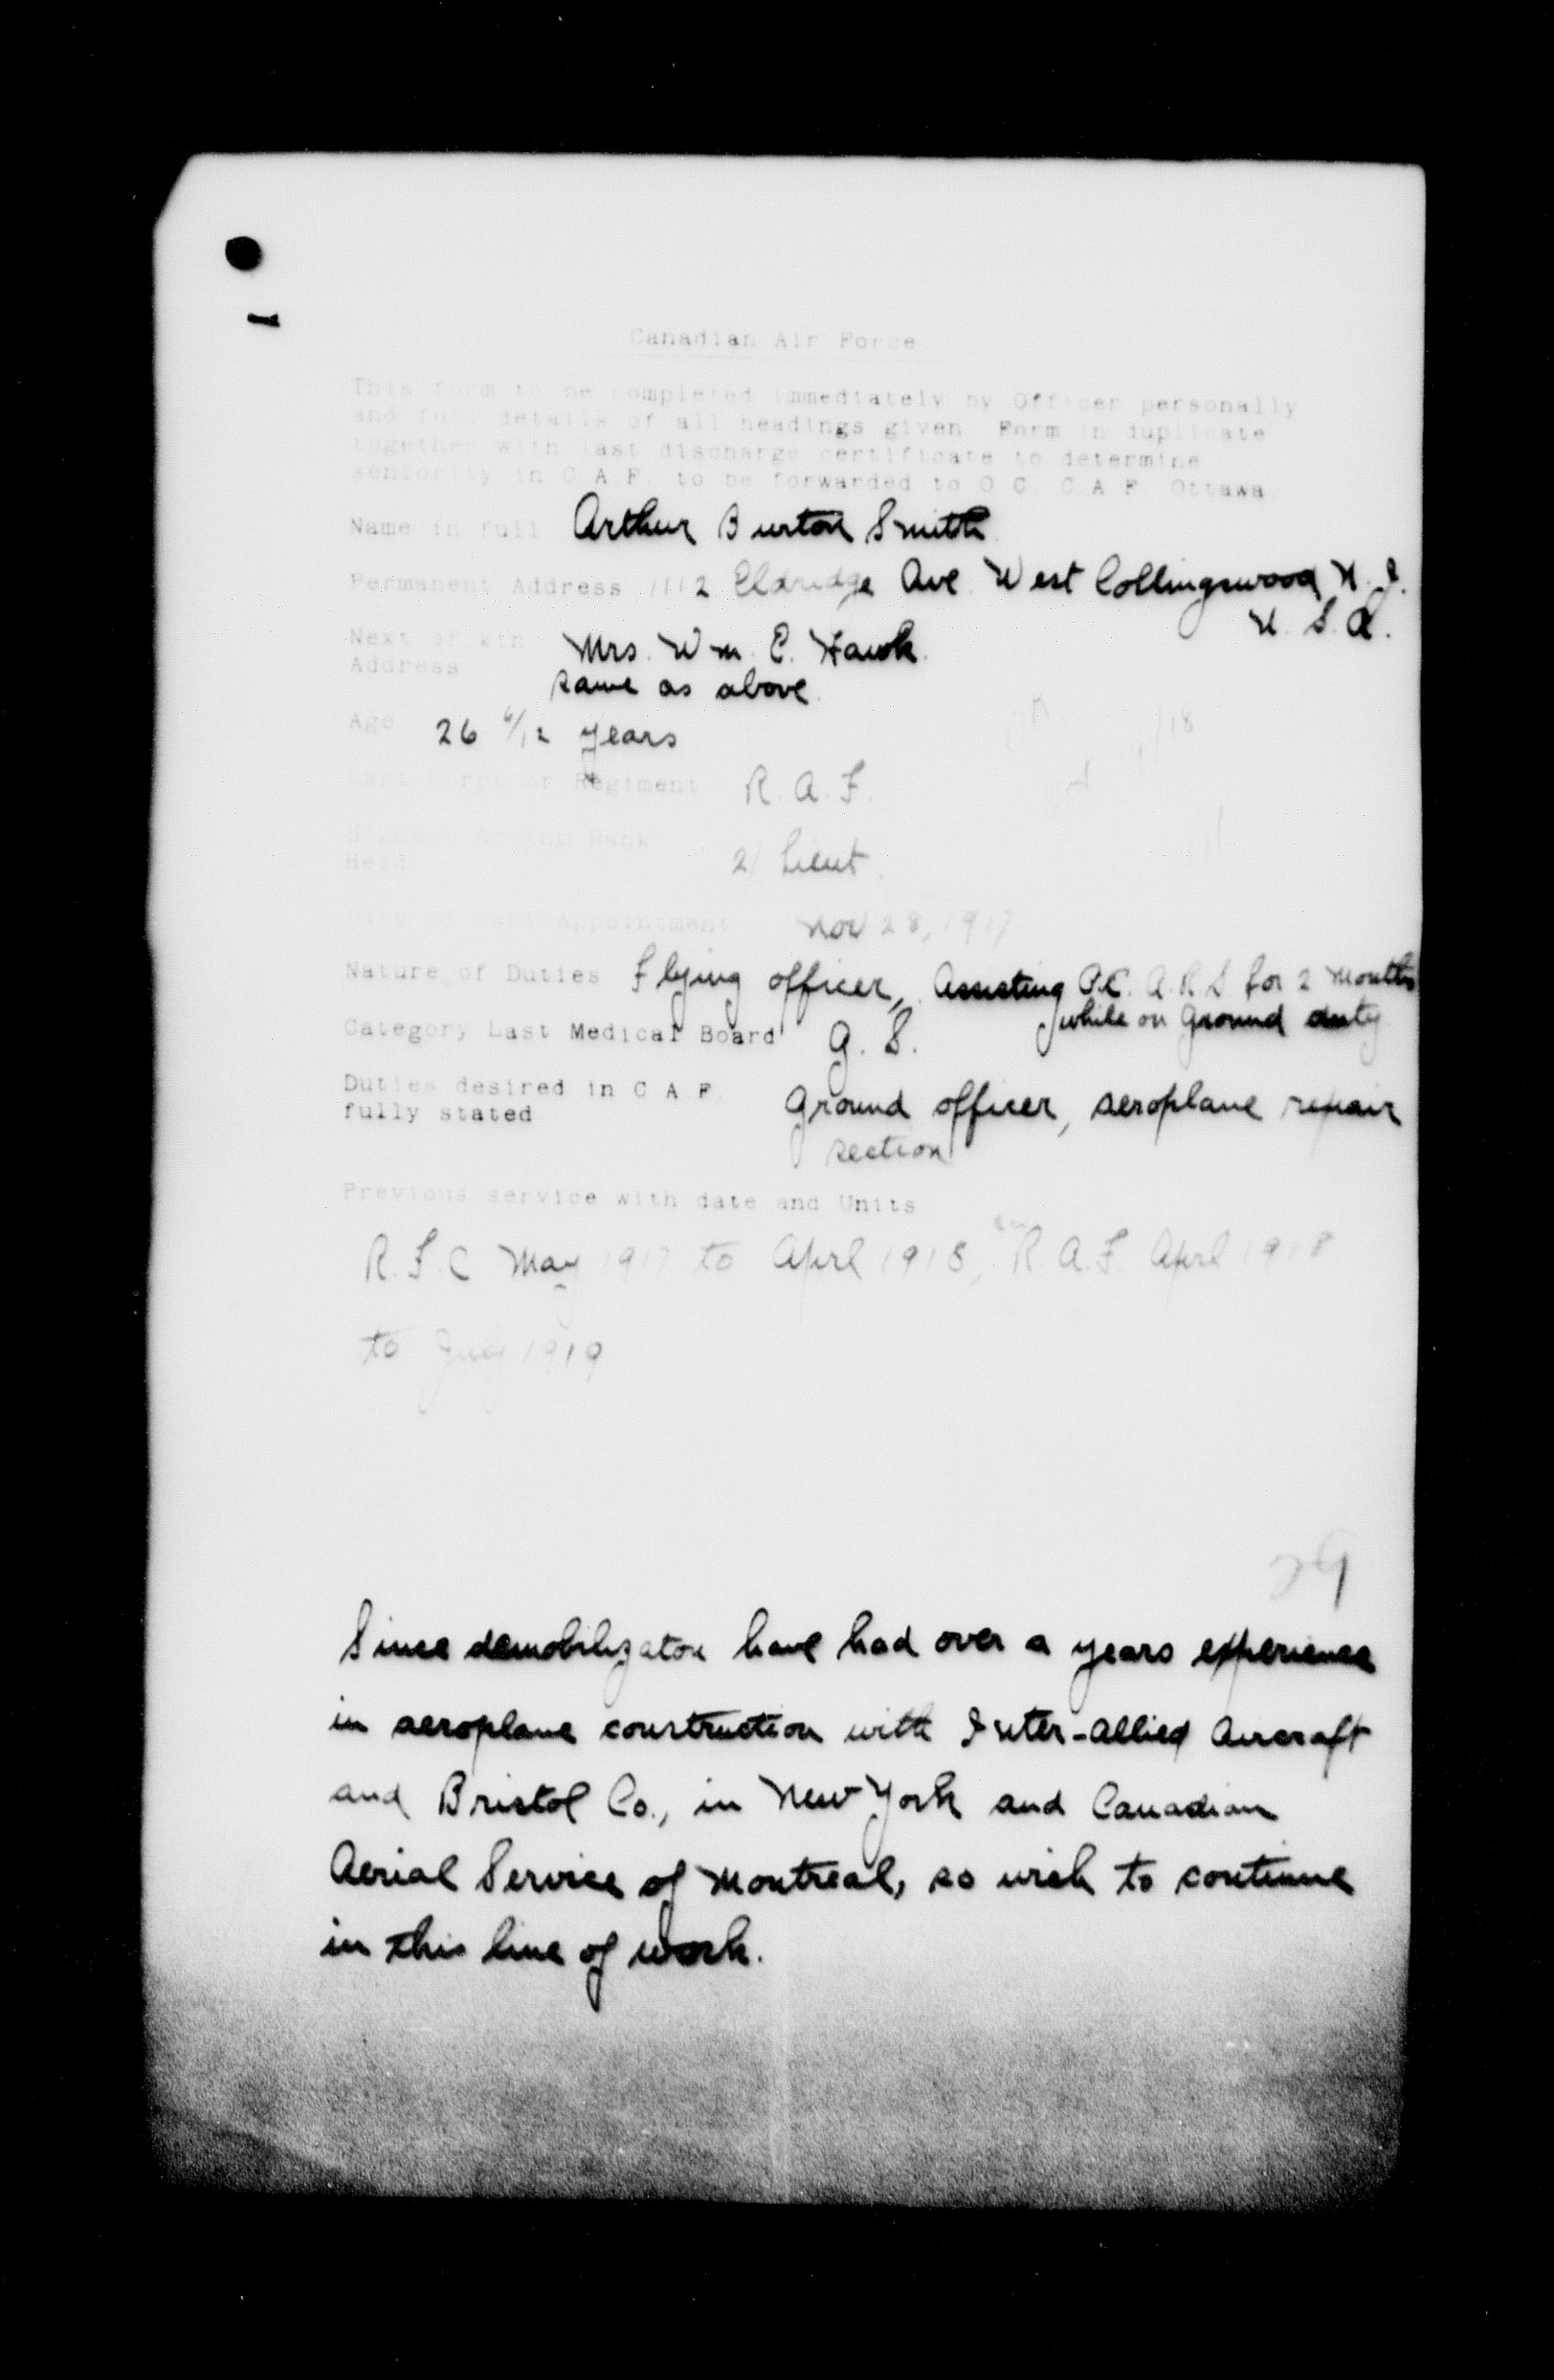 Canadian Air Force
This form to be completed immediately by Officer personally
and full details of all headings given. Form in duplicate
together with last discharge certificate to determine
seniority in C.A.F. to be forwarded to O.C. C.A.F. Ottawa
Name in full Arthur Burton Smith
Permanent Address 1112 Eldridge Ave. West Collingswood N. J.
U. S. A.
Next of kin Mrs. Wm. E. Hawk.
Address same as above.
Age 26 6/12 years
Last Corps or Regiment R. A. F.
Highest Acting Rank
Held 2/ Lieut.
Date of last Appointment Nov 28, 1917
Nature of Duties Flying officer, Assisting O.C. A.R.S for 2 months
while on ground duty
Category Last Medical Board G. S.
Duties desired in C.A.F.
fully stated Ground officer, aeroplane repair
section
Previous service with date and Units
R.F.C May 1917 to April 1918, R.A.F. April 1918
to July 1919
29
Since demobilizaton have had over a years experience
in aeroplane construction with Inter-Allied Aircraft
and Bristol Co., in New York and Canadian
Aerial Service of Montreal, so wish to continue
in this line of work.